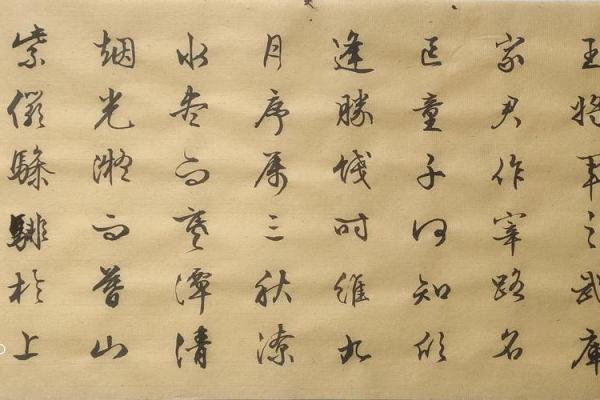 王将軍之武庫
家君作宰路名
区童子何知躬
逢勝餞时維九
月序属三秋潦
水尽而寒潭清
烟光凝而暮山
紫儼驂騑於上